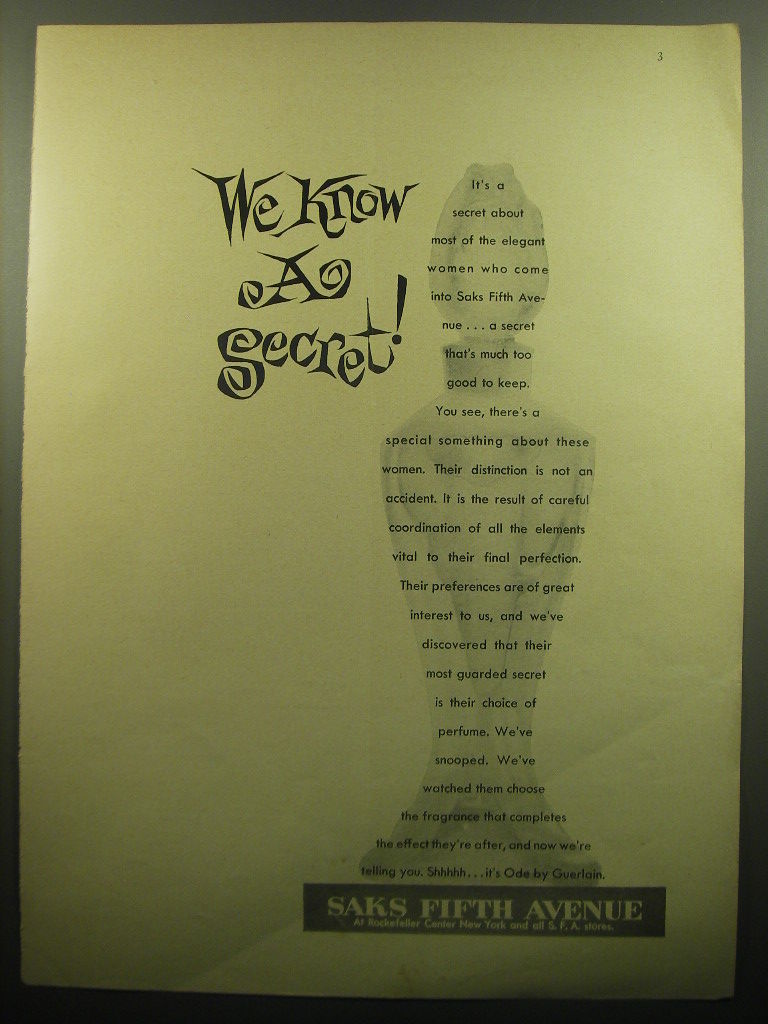 3
We Know
A
Secret!
It's a
secret about
most of the elegant
women who come
into Saks Fifth Ave-
nue . . . a secret
that's much too
good to keep.
You see, there's a
special something about these
women. Their distinction is not an
accident. It is the result of careful
coordination of all the elements
vital to their final perfection.
Their preferences are of great
interest to us, and we've
discovered that their
most guarded secret
is their choice of
perfume. We've
snooped. We've
watched them choose
the fragrance that completes
the effect they're after, and now we're
telling you. Shhhhh...it's Ode by Guerlain.
SAKS FIFTH AVENUE
At Rockefeller Center New York and all S. F. A. stores.